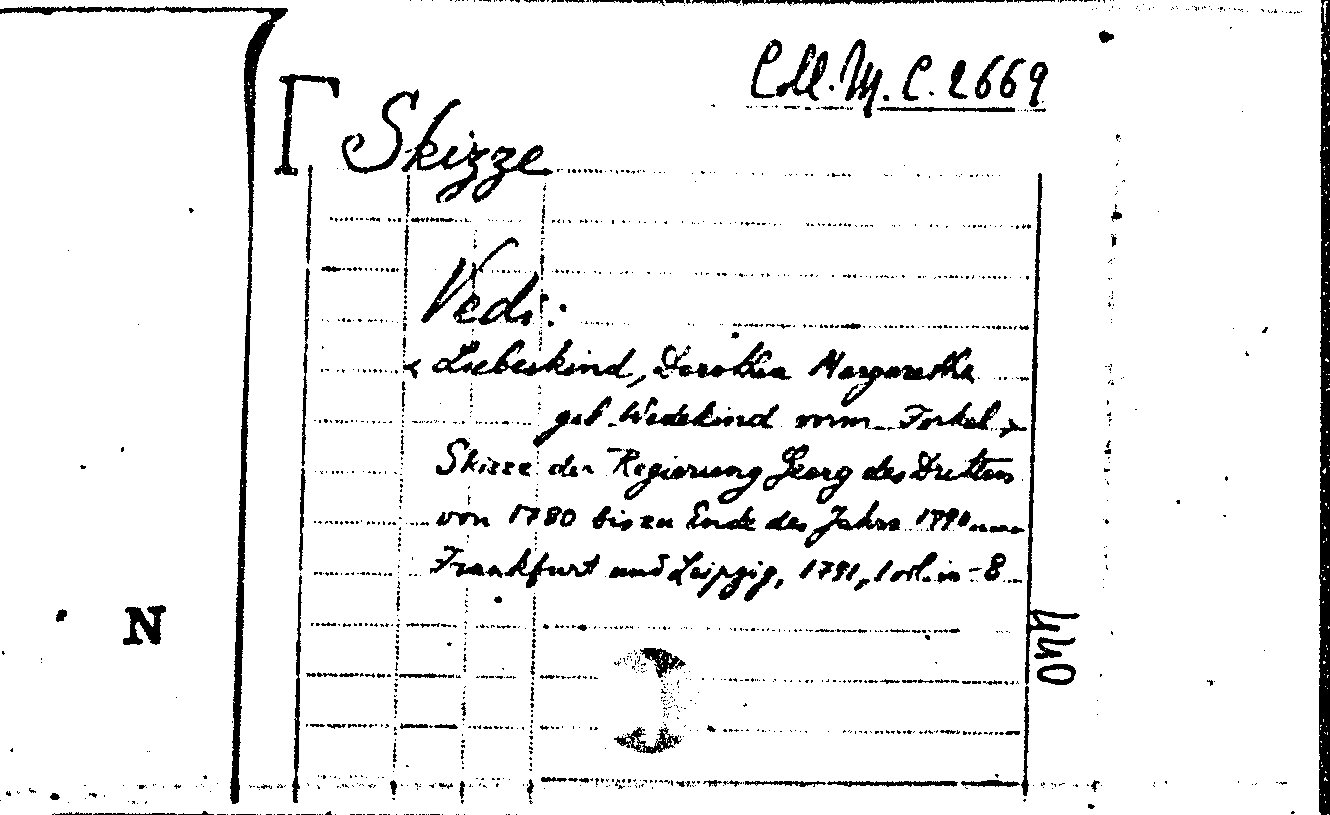 Coll. M. C. 2669
Skizze
Vedi:
< Liebeskind, Dorothea Margaretha
geb. Wedekind vorm. Forkel >
Skizze der Regierung Georg des Dritten
von 1780 bis zu Ende des Jahrs 1790
Frankfurt und Leipzig, 1791, 1 vol. in-8
N